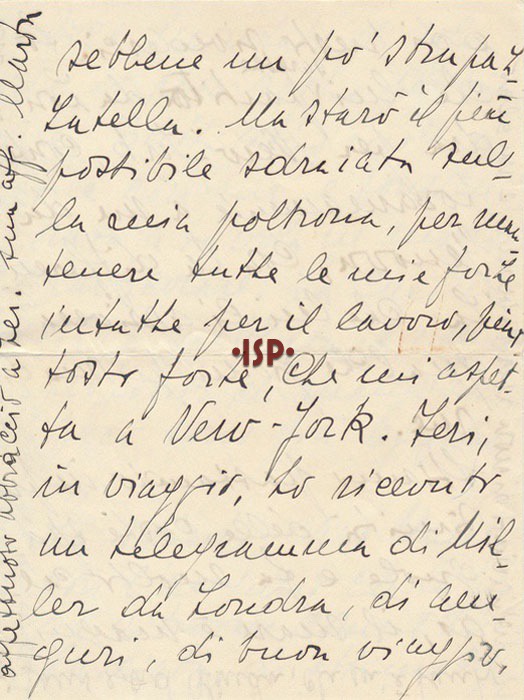 sebbene un po' strapaz-
zatella. Ma starò il più
possibile sdraiata sul-
la mia poltrona, per man-
tenere tutte le mie forze
intatte per il lavoro, piut
tosto forte, che mi aspet-
ta a New-York. Ieri,
in viaggio, ho ricevuto
un telegramma di Mil-
ler da Londra, di au-
guri, di buon viaggio,
affettuoso abbraccio a lei. sua aff.
·ISP·